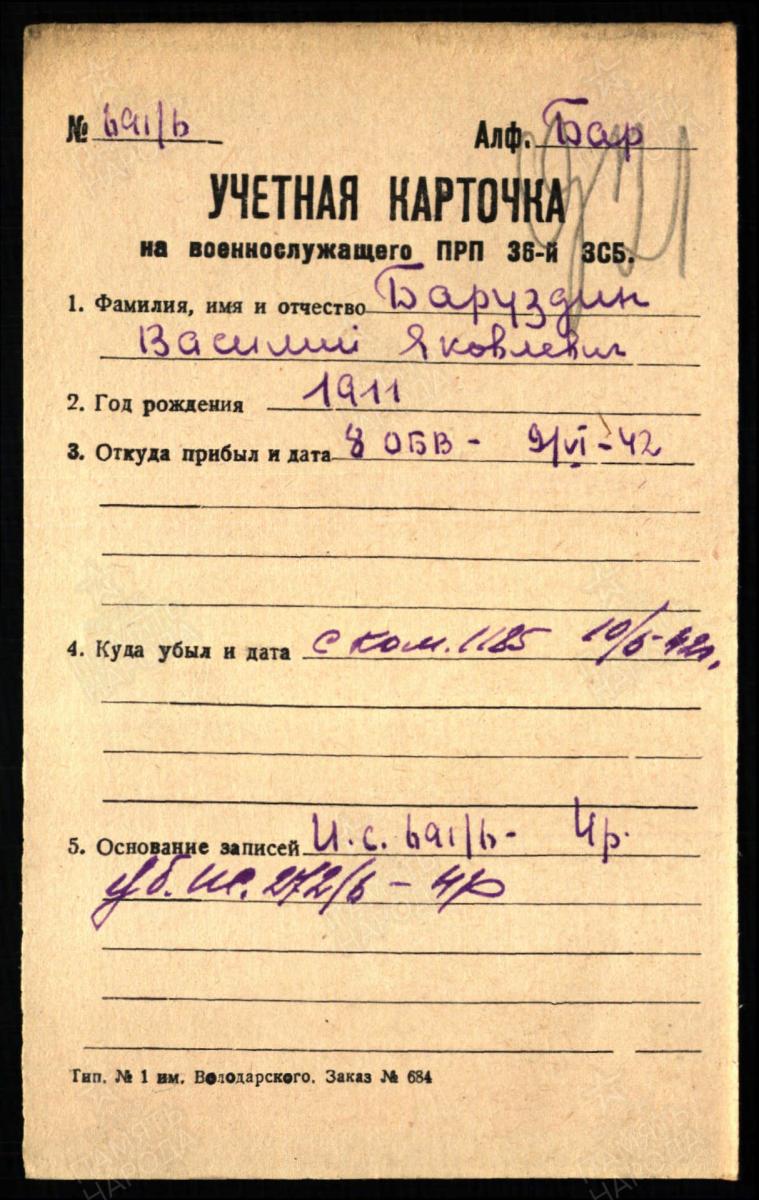 № 691/б Алф. Бар
УЧЕТНАЯ КАРТОЧКА
на военнослужащего ПРП 36-й ЗСБ.
1. Фамилия, имя и отчество Баруздин
Василий Яковлевич
2. Год рождения 1911
3. Откуда прибыл и дата 8 ОБВ - 9/VI-42
4. Куда убыл и дата с ком. 1185 10/6-42г.
5. Основание записей И.с. 691/б- Чр.
Уб. ис. 272/б - чр
Тип. № 1 им. Володарского. Заказ № 684
ПАМЯТЬ НАРОДА